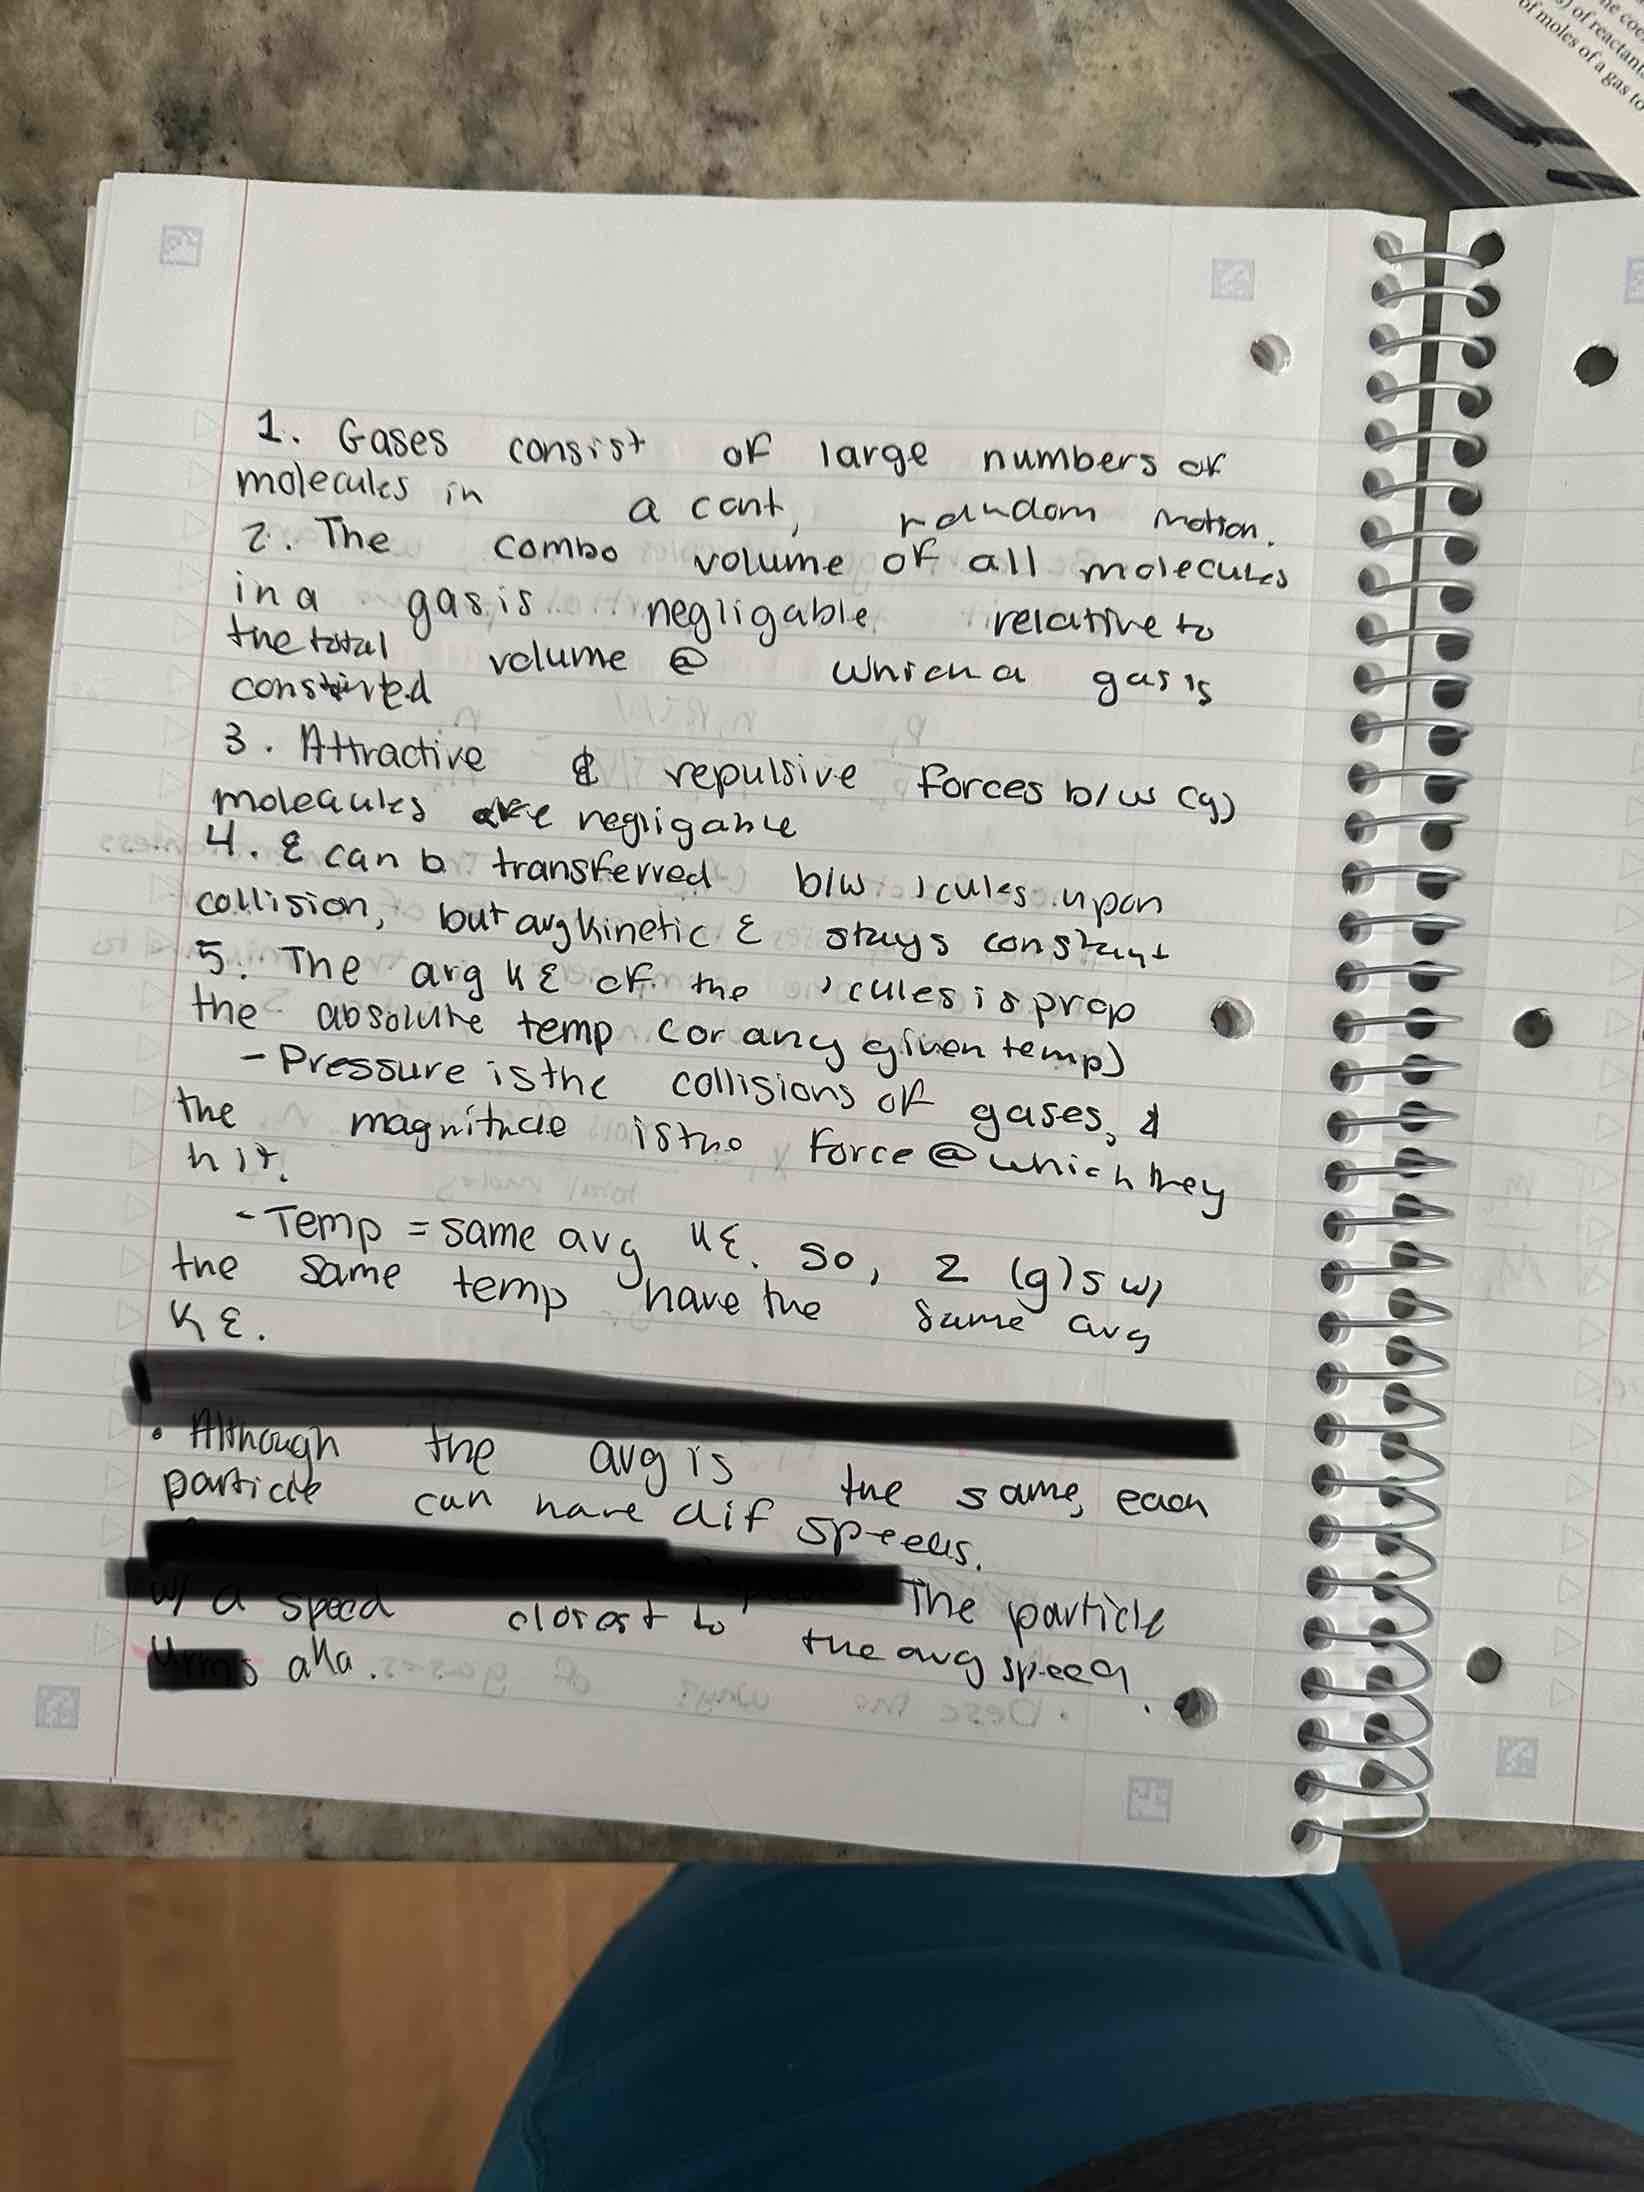 1. Gases consist of large numbers of
molecules in a cont, random motion.
2. The combo volume of all molecules
in a gas is negligable relative to
the total volume @ which a gas is
3. Attractive & repulsive forces b/w (g)
molecules are negligable
4. E can b transferred b/w 'cules upon
collision, but avg kinetic E stays constant
5. The avg KE of the 'cules is prop
the absolute temp (or any given temp)
- Pressure is the collisions of gases, &
the magnitude is the force @ which they
hit.
- Temp = same avg KE. So, 2 (g)s w/
the same temp have the same avg
KE.
• Although the avg is the same, each
particle can have dif speeds.
The particle
w/ a speed closest to the avg speed
aka.
of reactant
of moles of a gas to